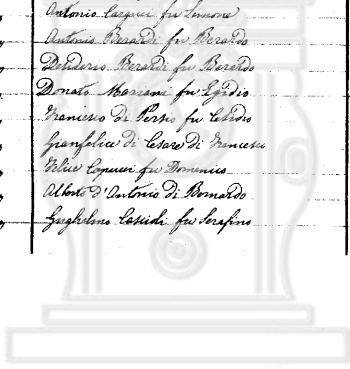 Antonio Capucci fu Simone
Antonio Berardi fu Berardo
Desiderio Berardi fu Berardo
Donato Marrami fu Egidio
Francesco di Persio fu Cesidio
Gianfelice di Cesare di Francesco
Felice Capucci fu Domenico
Alberto d'Antonio di Bernardo
Guglielmo Cascioli fu Serafino